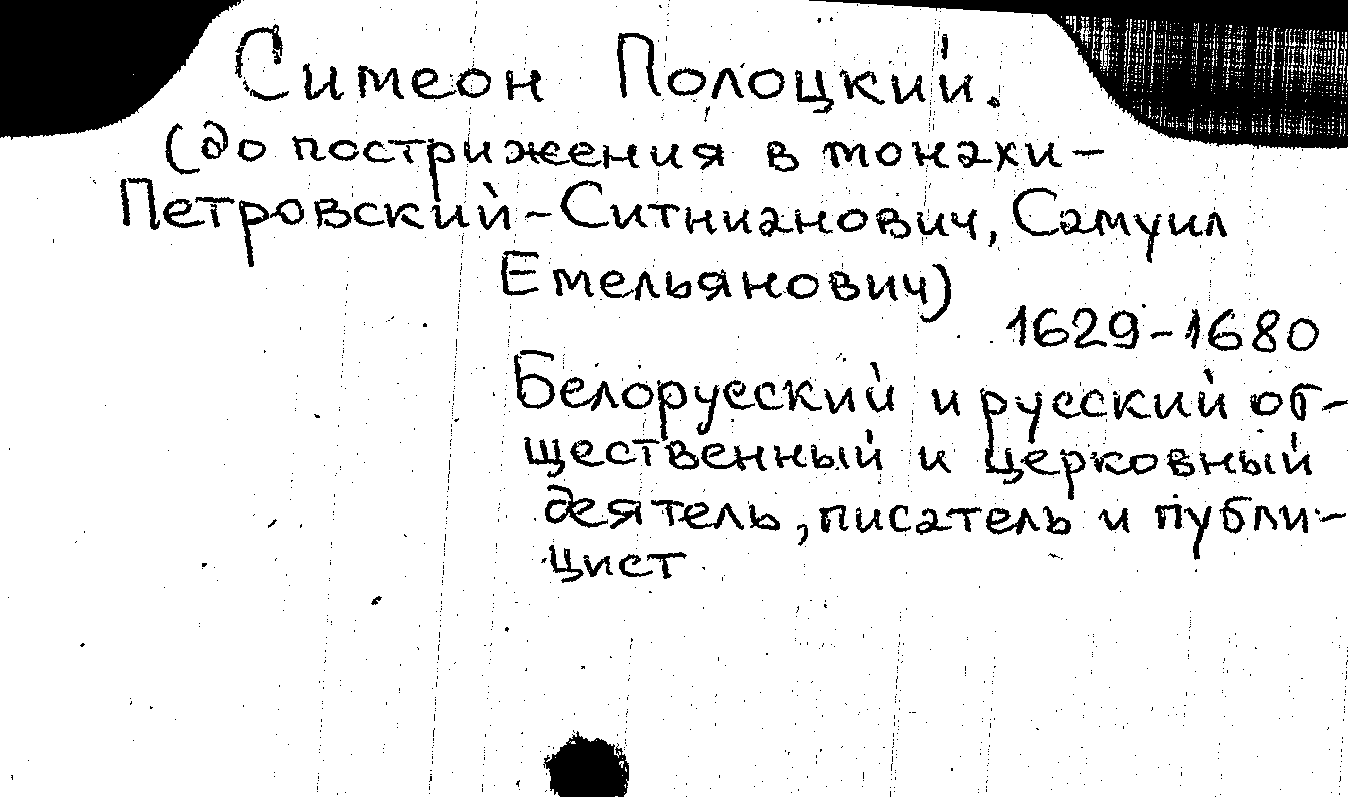 Симеон Полоцкий.
(до пострижения в монахи -
Петровский-Ситнианович, Самуил
Емельянович)
1629-1680
Белорусский и русский об-
щественный и церковный
деятель, писатель и публи-
цист